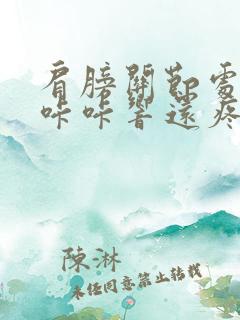 肩膀關節處
咔咔響還疼
陳淋
未经同意禁止转载